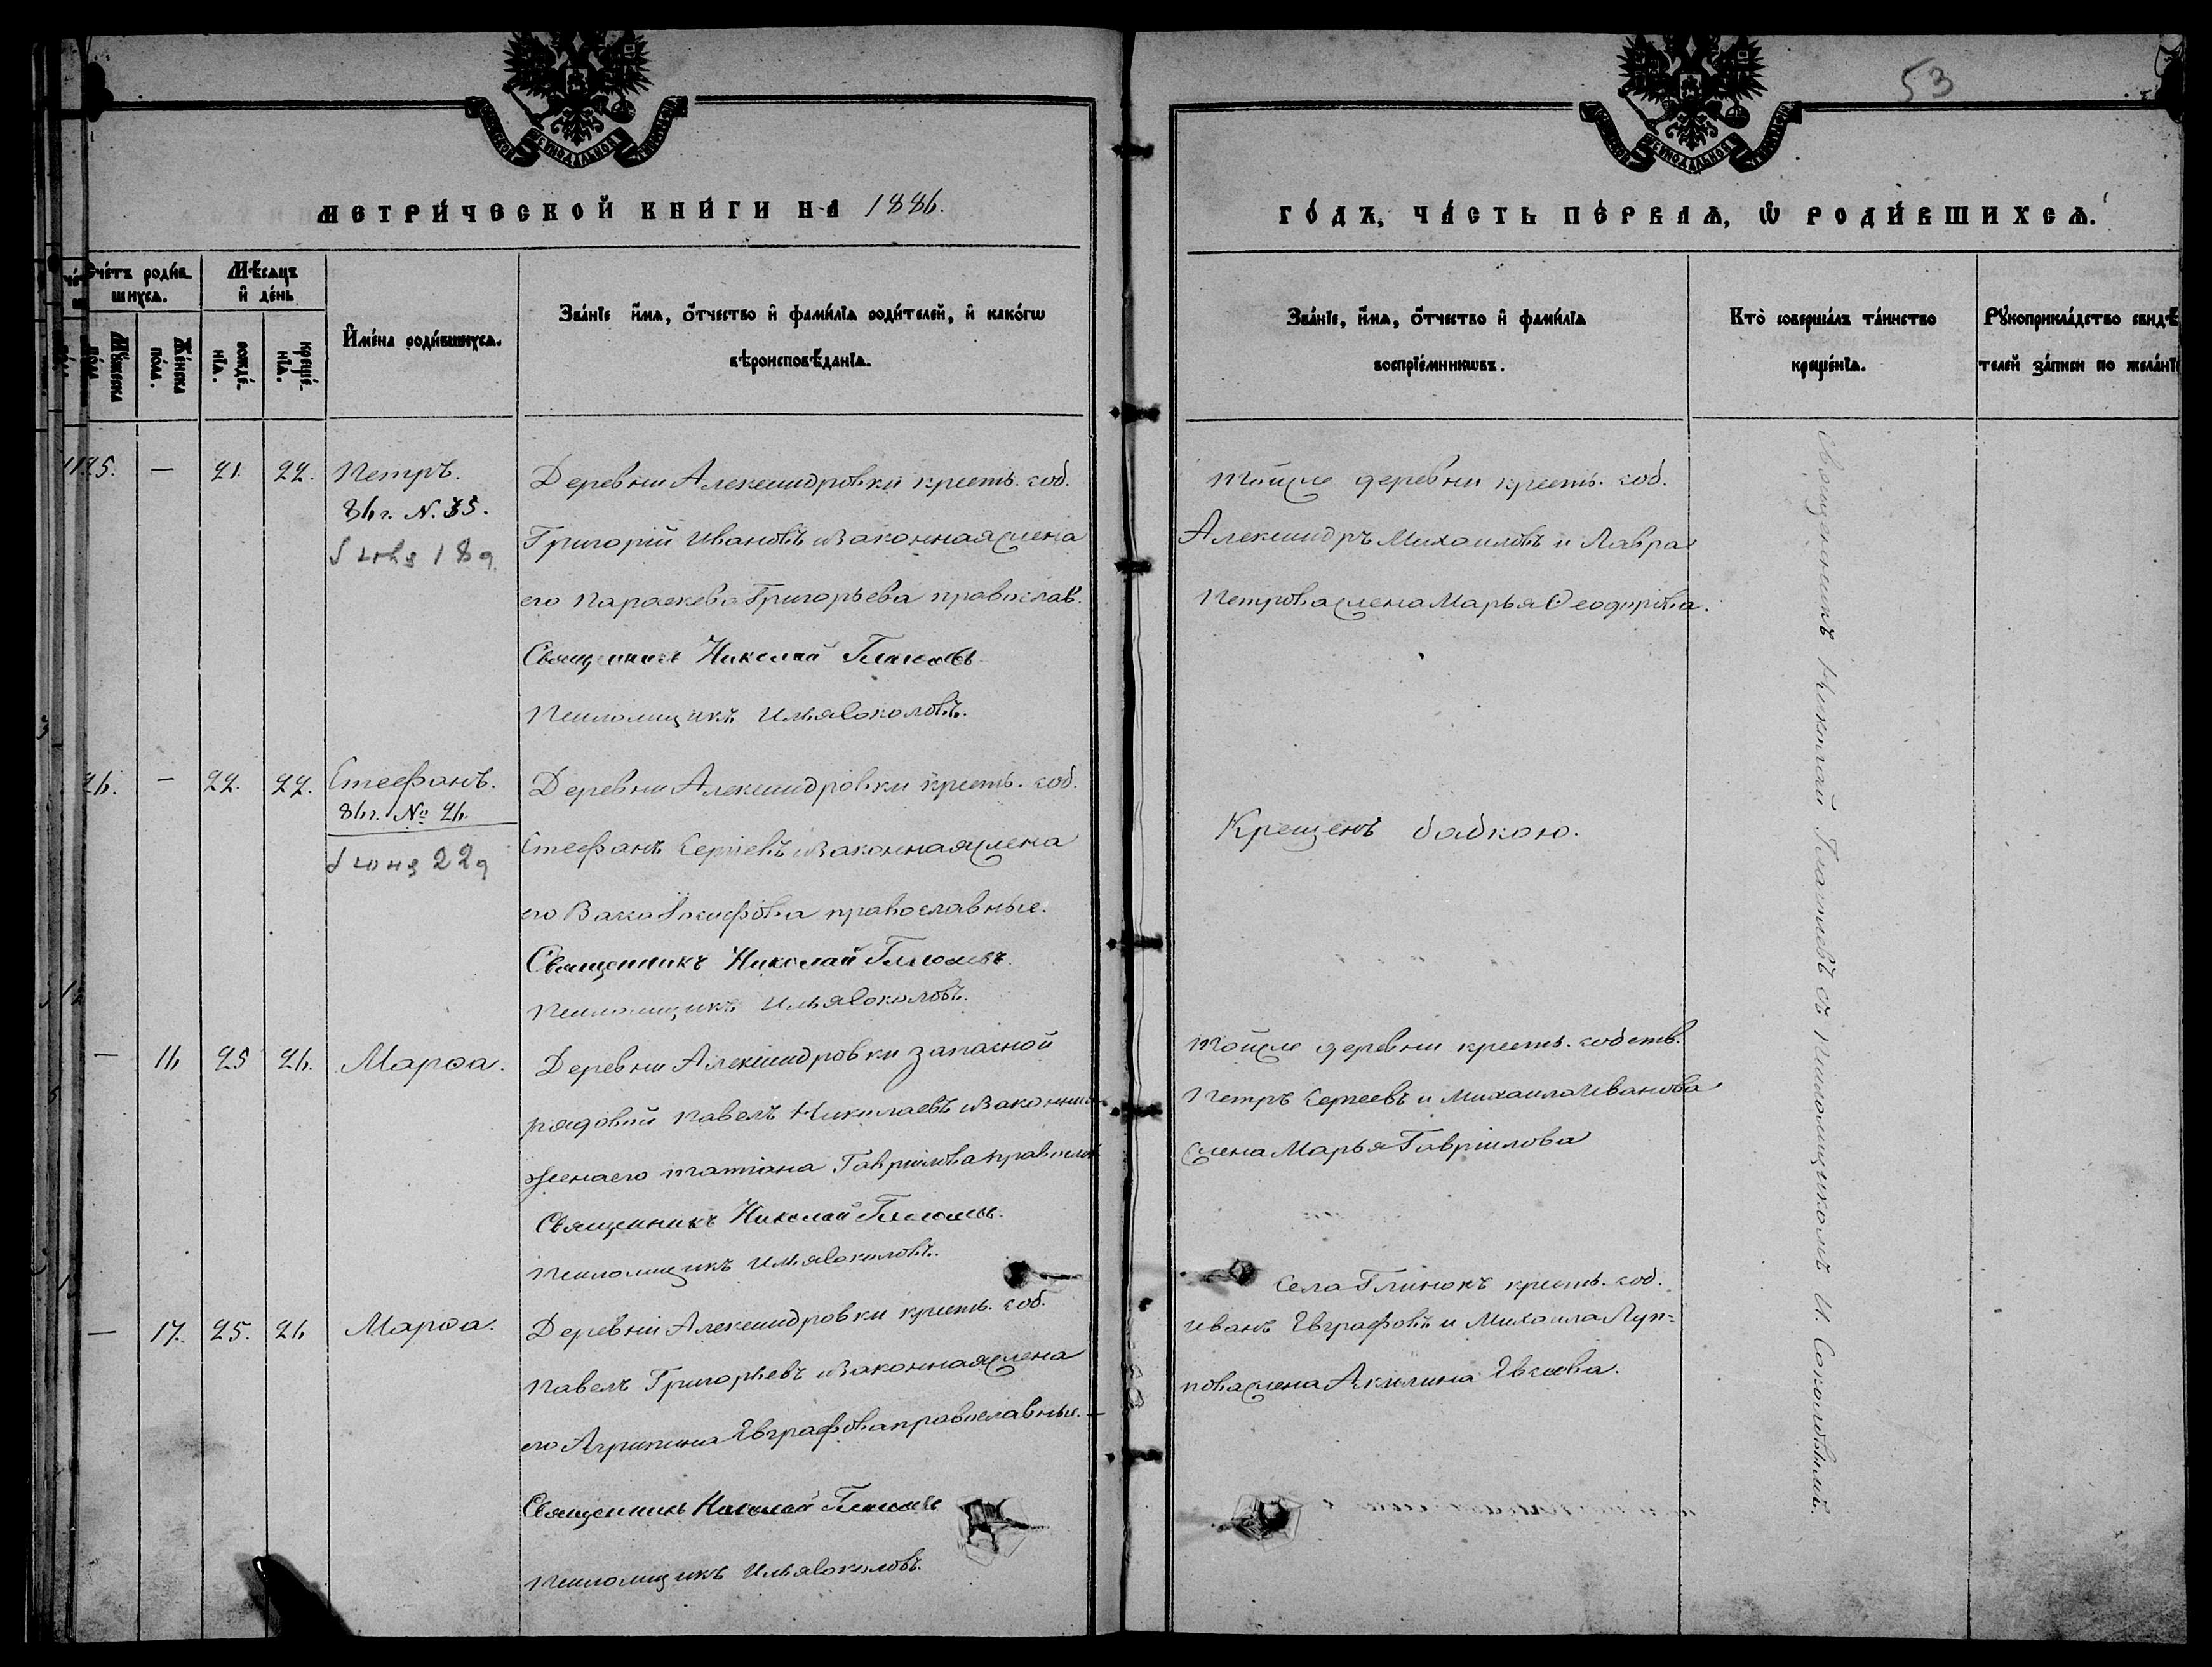 53
МЕТРИ́ЧЕСКОЙ КНИ́ГИ НА 1886.
ГО́ДЪ, ЧА́СТЬ ПЕ́РВАѦ, Ѡ РОДИ́ВШИХСѦ.
Счéтъ роди́в-
шихсѧ.
Мꙋ́жеска
по́ла.
Же́нска
по́ла.
Мѣ́сѧцъ
и҆ де́нь
рожде́-
нїѧ.
креще́-
нїѧ.
И҆мена̀ роди́вшихсѧ.
Зва́нїе и҆́мѧ, ѻ҆́тчество и҆ фами́лїѧ роди́телей, и҆ како́гѡ
вѣроисповѣ́данїѧ.
Зва́нїе, и҆́мѧ, ѻ҆́тчество и҆ фами́лїѧ
воспрїе́мникѡвъ.
Кто̀ соверша́лъ та́инство
креще́нїѧ.
Рꙋкоприкла́дство свидѣ́
телей за́писи по жела́нї
25. — 21. 22. Петръ.
86 г. N. 35.
Деревни Александровки крестъ. соб.
Григорій Ивановъ и законная жена
его Параскева Григорьева православ.
Священникъ Николай
Псаломщикъ Илья Соколовъ.
Тойже деревни крестъ. соб.
Александръ Михаиловъ и Лавра
Петрова жена Марья Ѳеодорова.
26. — 22. 22. Стефанъ.
86 г. № 26.
Июня 22 д
Деревни Александровки крестъ. соб.
Стефанъ Сергіевъ и законная жена
его православные.
Священникъ Николай
Псаломщикъ Илья Соколовъ.
Крещенъ бабкою.
— 16 25 26. Марѳа.
Деревни Александровки запасной
рядовой Павелъ Николаевъ и законная
жена его Татіана Гавріилова православ
Священникъ Николай
Псаломщикъ Илья Соколовъ.
Тойже деревни крестъ. собств.
Петръ Сергеевъ и Михаила Иванова
жена Марья Гавріилова
— 17. 25. 26 Марѳа.
Деревни Александровки крестъ. соб.
Павелъ Григорьевъ и законная жена
его Агрипина Евграфова православные.
Священникъ Николай
Псаломщикъ Илья Соколовъ.
Села Глинокъ крестъ. соб.
Иванъ Евграфовъ и Михаила Луп=
пова жена Акилина Евсиева.
Священникъ Николай съ псаломщикомъ И. Соколовымъ.